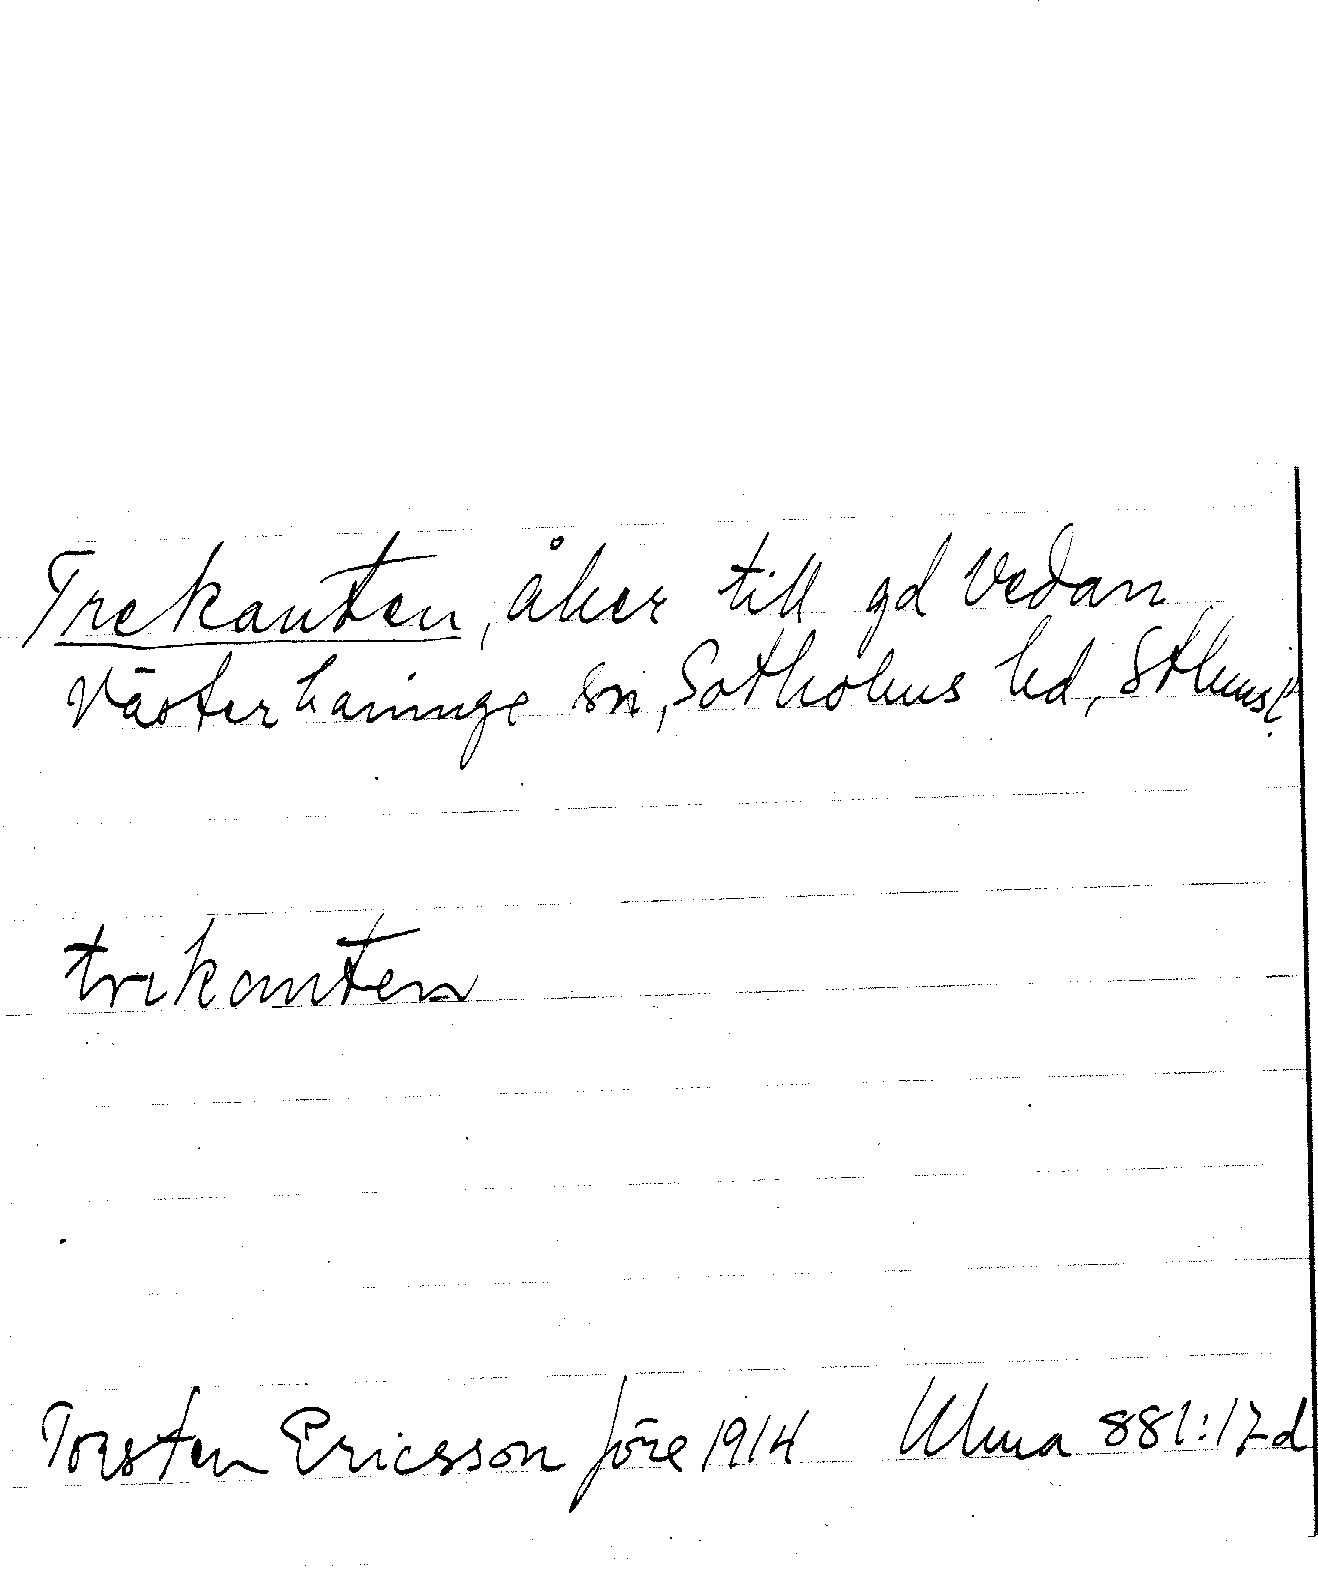 Trekanten, åker till gd Vedan
Västerhaninge sn, Sotholms hd, Sthms l.
trikanten
Torsten Ericsson före 1914 Ulma 881:17d